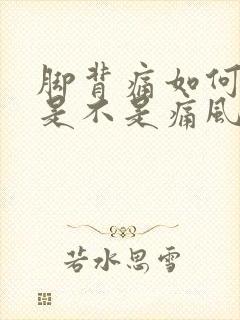 脚背痛如何
是不是痛风
若水思雪